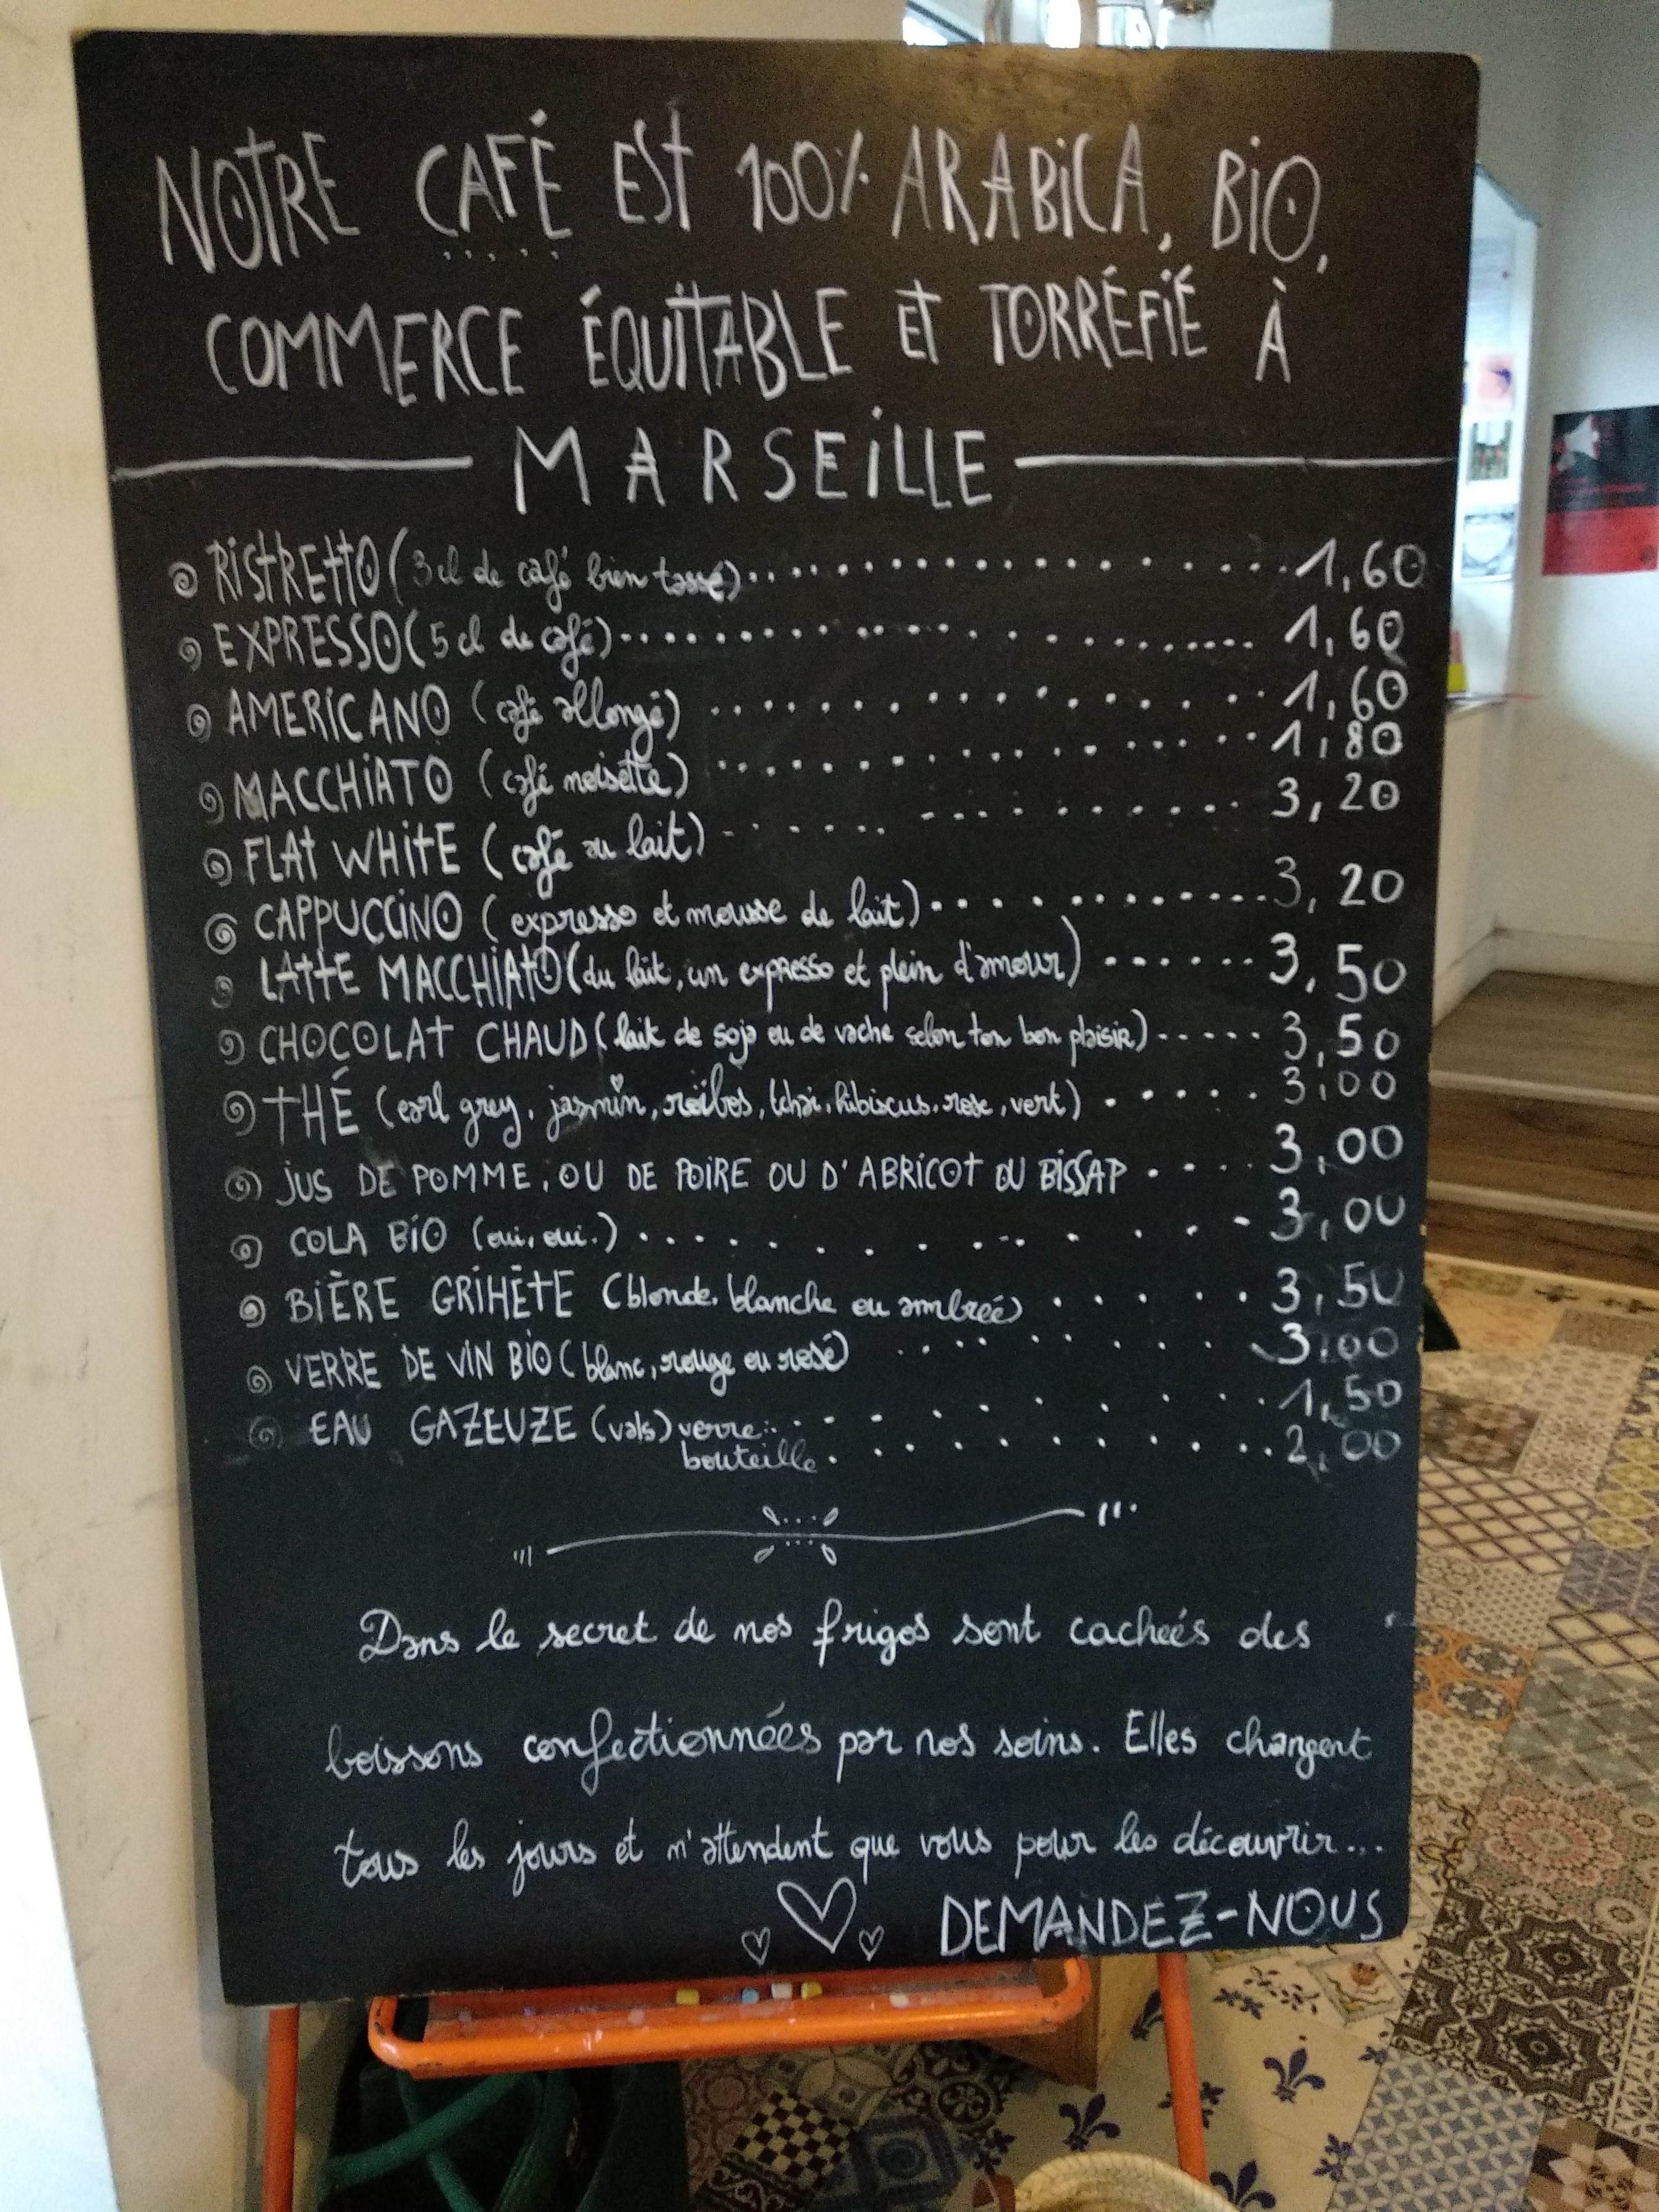 NOTRE CAFÉ EST 100% ARABICA, BIO,
COMMERCE ÉQUITABLE ET TORRÉFIÉ À
MARSEILLE
RISTRETTO (3 cl de café bien tassé) 1,60
EXPRESSO (5 cl de café) 1,60
AMERICANO (café allongé) 1,60
MACCHIATO (café noisette) 1,80
FLAT WHITE (café au lait) 3,20
CAPPUCCINO (expresso et mousse de lait) 3,20
LATTE MACCHIATO (du lait, un expresso et plein d'amour) 3,50
CHOCOLAT CHAUD (lait de soja ou de vache selon ton bon plaisir) 3,50
THÉ (earl grey, jasmin, roïbos, tchaï, hibiscus, rose, vert) 3,00
JUS DE POMME, OU DE POIRE OU D'ABRICOT OU BISSAP 3,00
COLA BIO (oui, oui.) 3,00
BIÈRE GRIHÈTE (blonde, blanche ou ambrée) 3,50
VERRE DE VIN BIO (blanc, rouge ou rosé) 3,00
EAU GAZEUZE (vals) verre 1,50
bouteille 2,00
Dans le secret de nos frigos sont cacheés des
boissons confectionnées par nos soins. Elles changent
tous les jours et n'attendent que vous pour les découvrir...
DEMANDEZ-NOUS